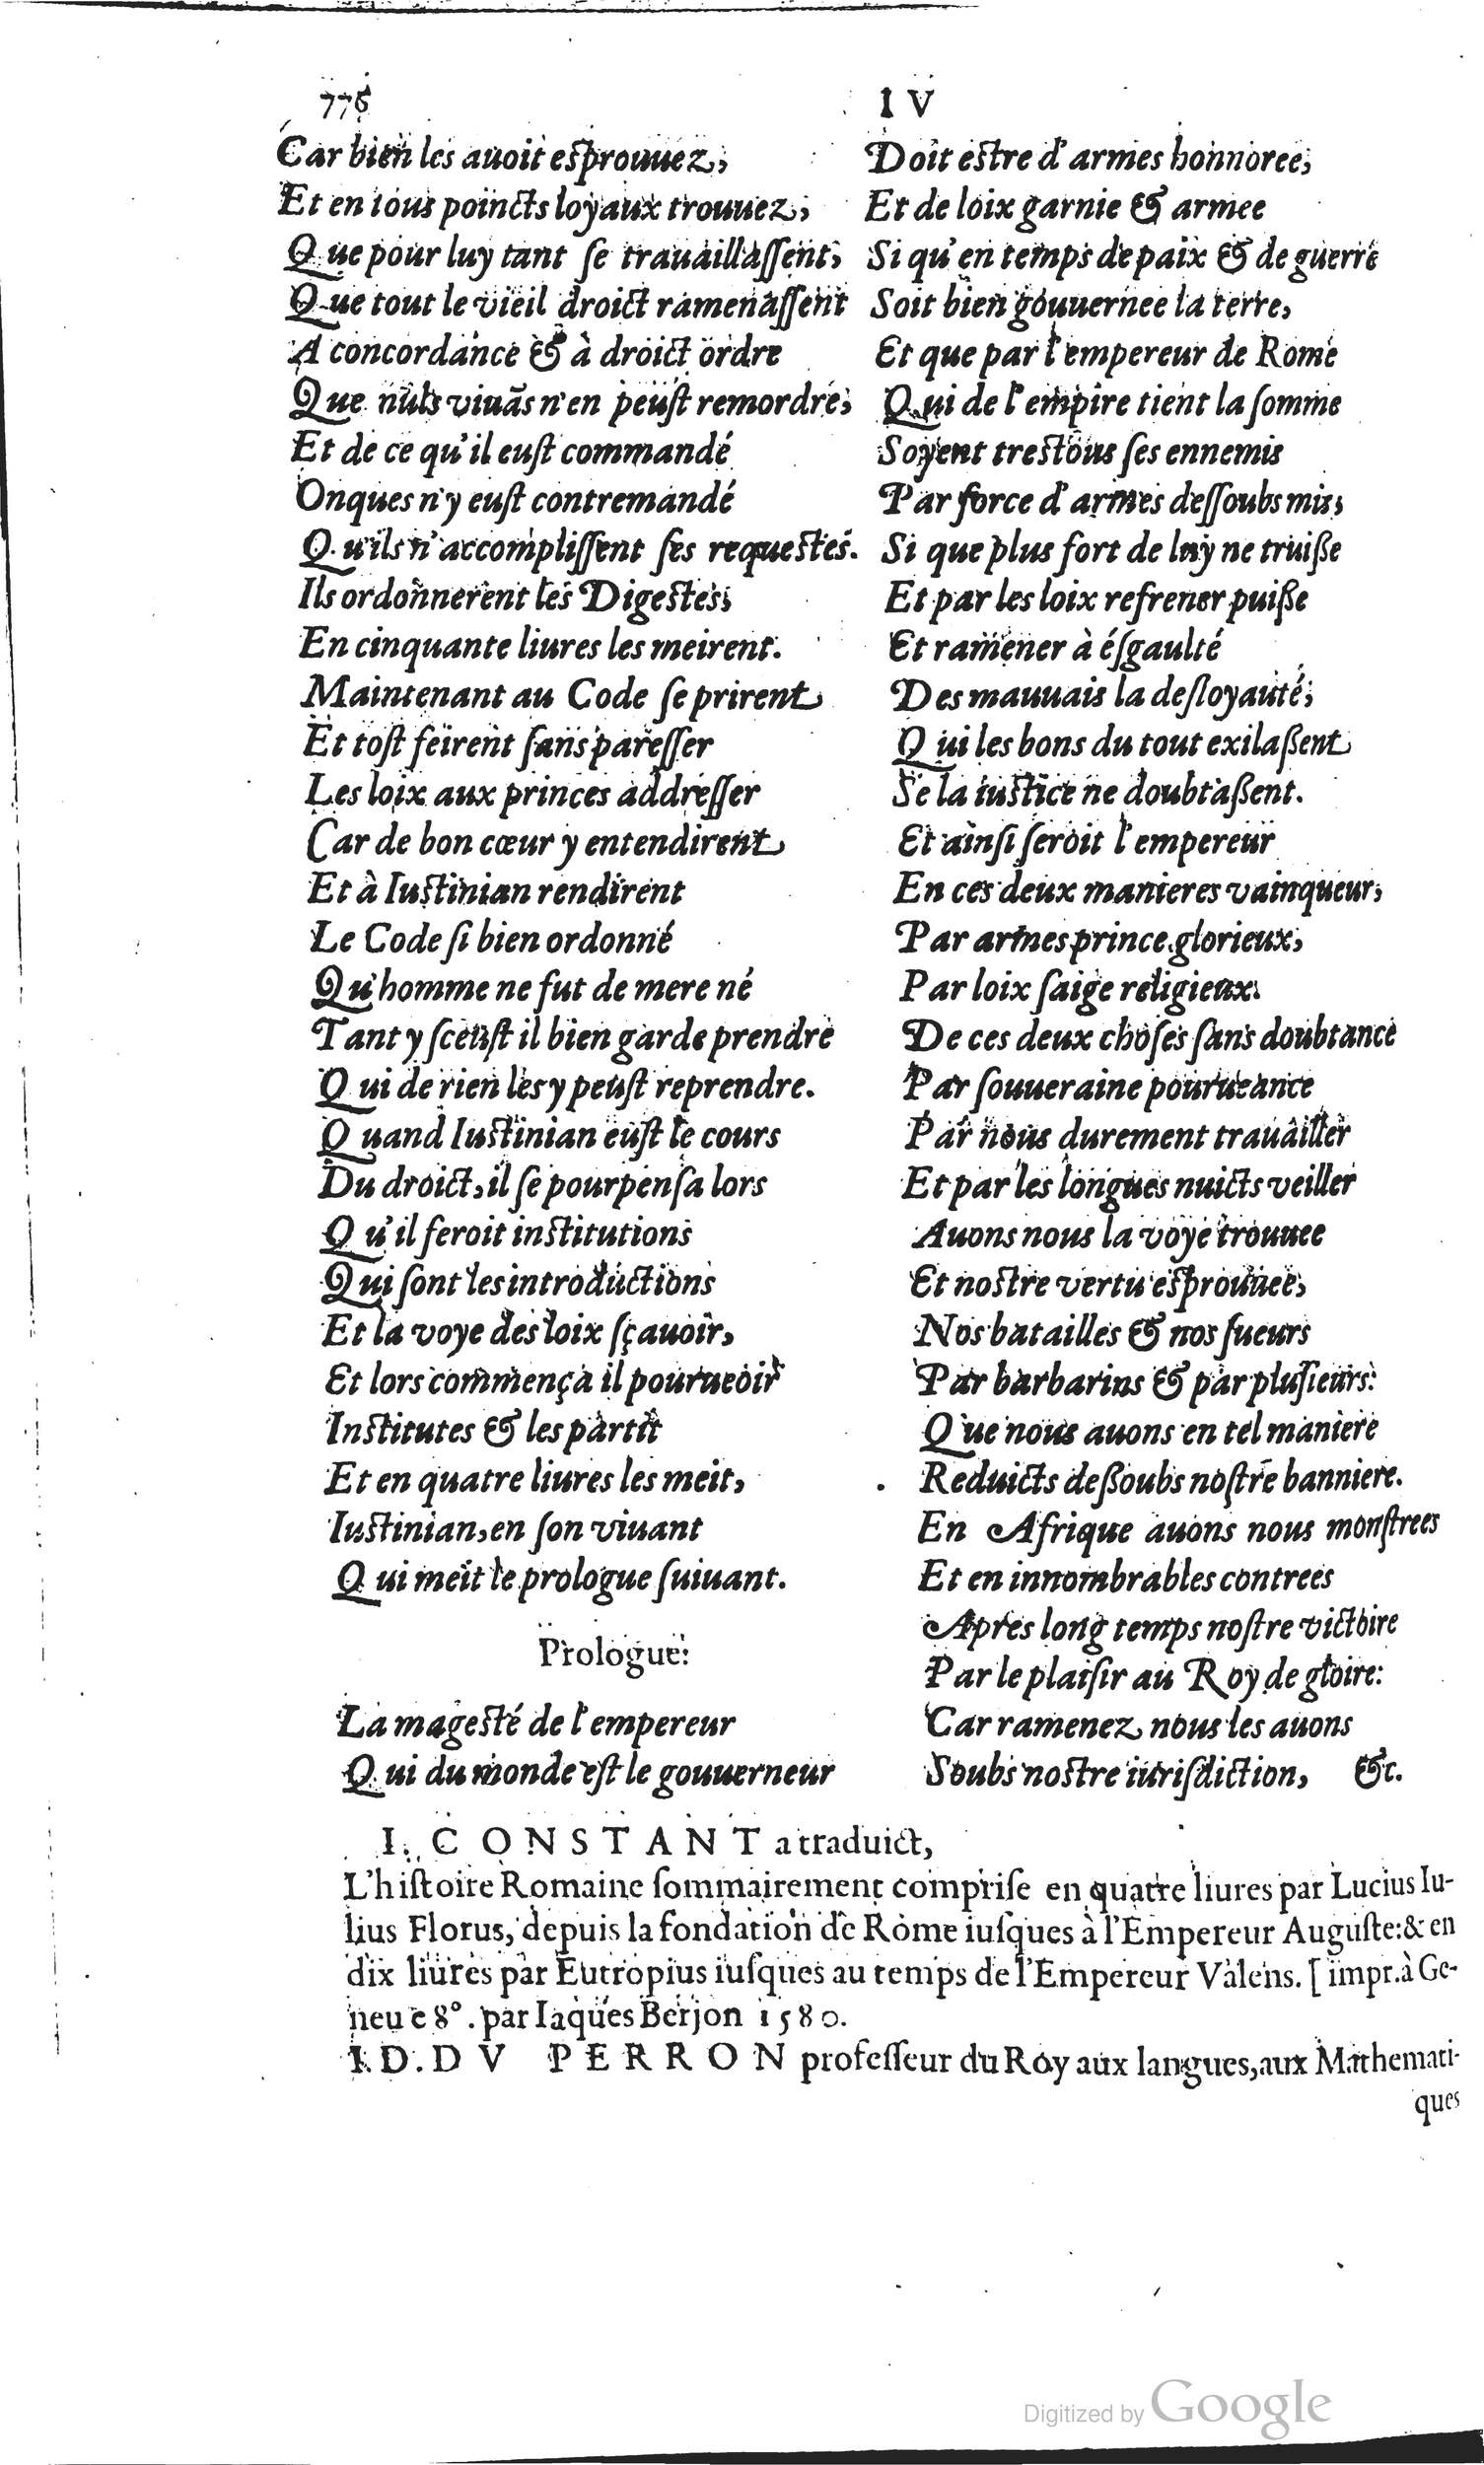 776
IV
Car bien les auoit esprouuez,
Et en tous poincts loyaux trouuez,
Que pour luy tant se trauaillassent,
Que tout le vieil droict ramenassent
A concordance & à droict ordre
Que nuls viuãs n'en peust remordre,
Et de ce qu'il eust commandé
Onques n'y eust contremandé
Qu'ils n'accomplissent ses requestes.
Ils ordonnerent les Digestes,
En cinquante liures les meirent.
Maintenant au Code se prirent
Et tost feirent sans paresser
Les loix aux princes addresser
Car de bon cœur y entendirent
Et à Iustinian rendirent
Le Code si bien ordonné
Qu'homme ne fut de mere né
Tant y sceust il bien garde prendre
Qui de rien les y peust reprendre.
Quand Iustinian eust le cours
Du droict, il se pourpensa lors
Qu'il feroit institutions
Qui sont les introductions
Et la voye des loix sçauoir,
Et lors commença il pourueoir
Institutes & les partit
Et en quatre liures les meit,
Iustinian, en son viuant
Qui meit le prologue suiuant.
Prologue:
La magesté de l'empereur
Qui du monde est le gouuerneur
Doit estre d'armes honnoree,
Et de loix garnie & armee
Si qu'en temps de paix & de guerre
Soit bien gouuernee la terre,
Et que par l'empereur de Rome
Qui de l'empire tient la somme
Soyent trestous ses ennemis
Par force d'armes dessoubs mis,
Si que plus fort de luy ne truisse
Et par les loix refrener puisse
Et ramener à ésgaulté
Des mauuais la desloyauté,
Qui les bons du tout exilassent
Se la iustice ne doubtassent.
Et ainsi seroit l'empereur
En ces deux manieres vainqueur,
Par armes prince glorieux,
Par loix saige religieux.
De ces deux choses sans doubtance
Par souueraine pourueance
Par nous durement trauailler
Et par les longues nuicts veiller
Auons nous la voye trouuee
Et nostre vertu esprouuee,
Nos batailles & nos sueurs
Par barbarins & par plusieurs:
Que nous auons en tel maniere
Reduicts dessoubs nostre banniere.
En Afrique auons nous monstrees
Et en innombrables contrees
Apres long temps nostre victoire
Par le plaisir au Roy de gloire:
Car ramenez nous les auons
Soubs nostre iurisdiction, &c.
I. CONSTANT a traduict,
L'histoire Romaine sommairement comprise en quatre liures par Lucius Iu-
lius Florus, depuis la fondation de Rome iusques à l'Empereur Auguste: & en
dix liures par Eutropius iusques au temps de l'Empereur Valens. [impr. à Ge-
neue 8°. par Iaques Berjon 1580.
I. D. DV PERRON professeur du Roy aux langues, aux Mathemati-
ques
Digitized by Google